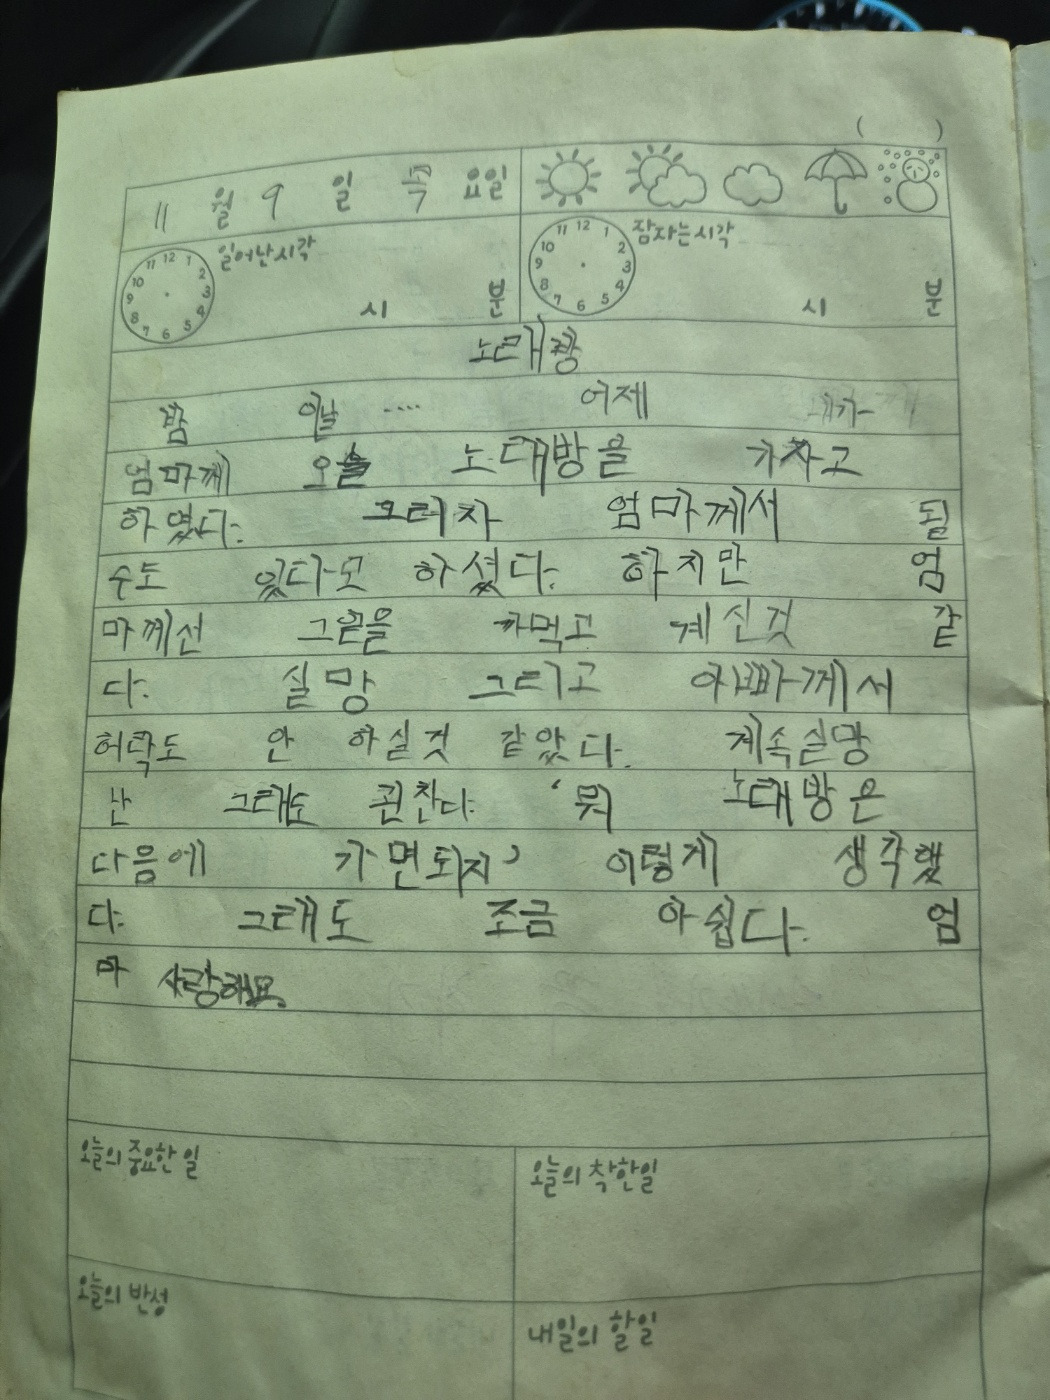 ( )
11 월 9 일 목 요일
12 1 2 3 4 5 6 7 8 9 10 11 일어난시각 시 분
12 1 2 3 4 5 6 7 8 9 10 11 잠자는시각 시 분
노래방
밤 ···· 어제 내가
엄마께 오늘 노래방을 가자고
하였다. 그러자 엄마께서 될
수도 있다고 하셨다. 하지만 엄
마께선 그 까먹고 계신것 같
다. 실망 그리고 아빠께서
허락도 안 하실것 같았다. 계속실망
난 그래도 괜찬다. ‘뭐 노래방은
다음에 가면되지’ 이렇게 생각했
다. 그래도 조금 아쉽다. 엄
마 사랑해요.
오늘의 중요한 일
오늘의 착한일
오늘의 반성
내일의 할일